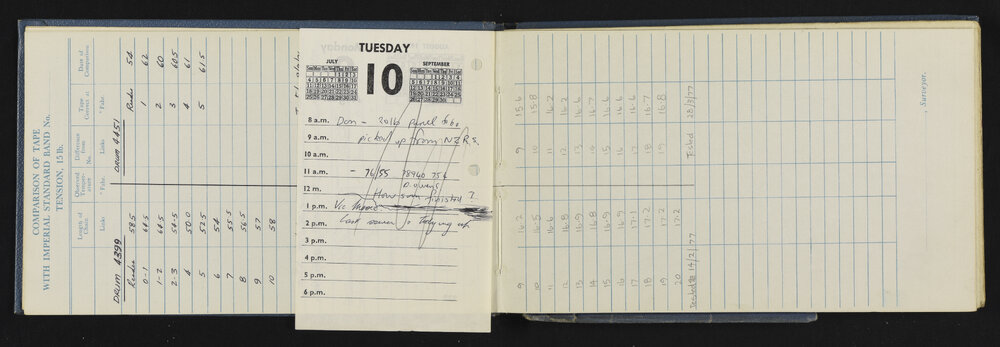 COMPARISON OF TAPE
WITH IMPERIAL STANDARD BAND No.
TENSION, 15 lb.
Length of Chain Observed Temperature Difference from No. Tape Correct at Date of Comparison
Links ° Fahr. Links ° Fahr.
DRUM 4399 DRUM 4451
Reader 58.5 Reader 54
0-1 64.5 1 62
1-2 64.5 2 60
2-3 54.5 3 60.5
4 50.0 4 61
5 52.5 5 61.5
6 54
7 55.5
8 56.5
9 57
10 58
TUESDAY
JULY
10
SEPTEMBER
8 a.m. Don - 20lb parcel to be
9 a.m. picked up from NZRS.
10 a.m.
11 a.m. - 76/55 78940 754
D. Owens
12 m. How soon finished ?
1 p.m. Vic
2 p.m. Cash to Tidying up.
3 p.m.
4 p.m.
5 p.m.
6 p.m.
9 16.2 9 15.6
10 16.5 10 15.8
11 16.6 11 16.2
12 16.8 12 16.2
13 16.9 13 16.6
14 16.8 14 16.7
15 16.9 15 16.6
16 16.9 16 16.6
17 17.1 17 16.6
18 17.2 18 16.7
19 17.2 19 16.8
20 17.2
Tested 14/2/77 Tested 28/3/77
, Surveyor.